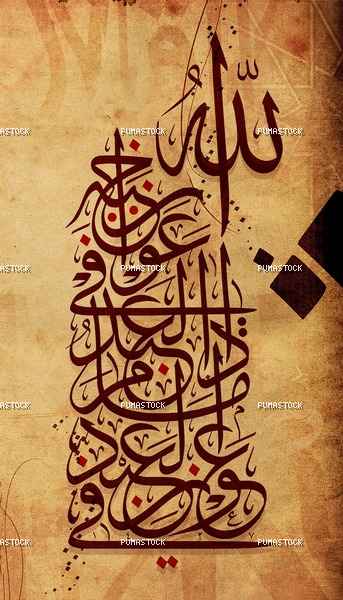 الله في عون العبد ما دام العبد في عون أخيه
PUMASTOCK PUMASTOCK PUMASTOCK
PUMASTOCK PUMASTOCK PUMASTOCK
PUMASTOCK PUMASTOCK PUMASTOCK
PUMASTOCK PUMASTOCK PUMASTOCK